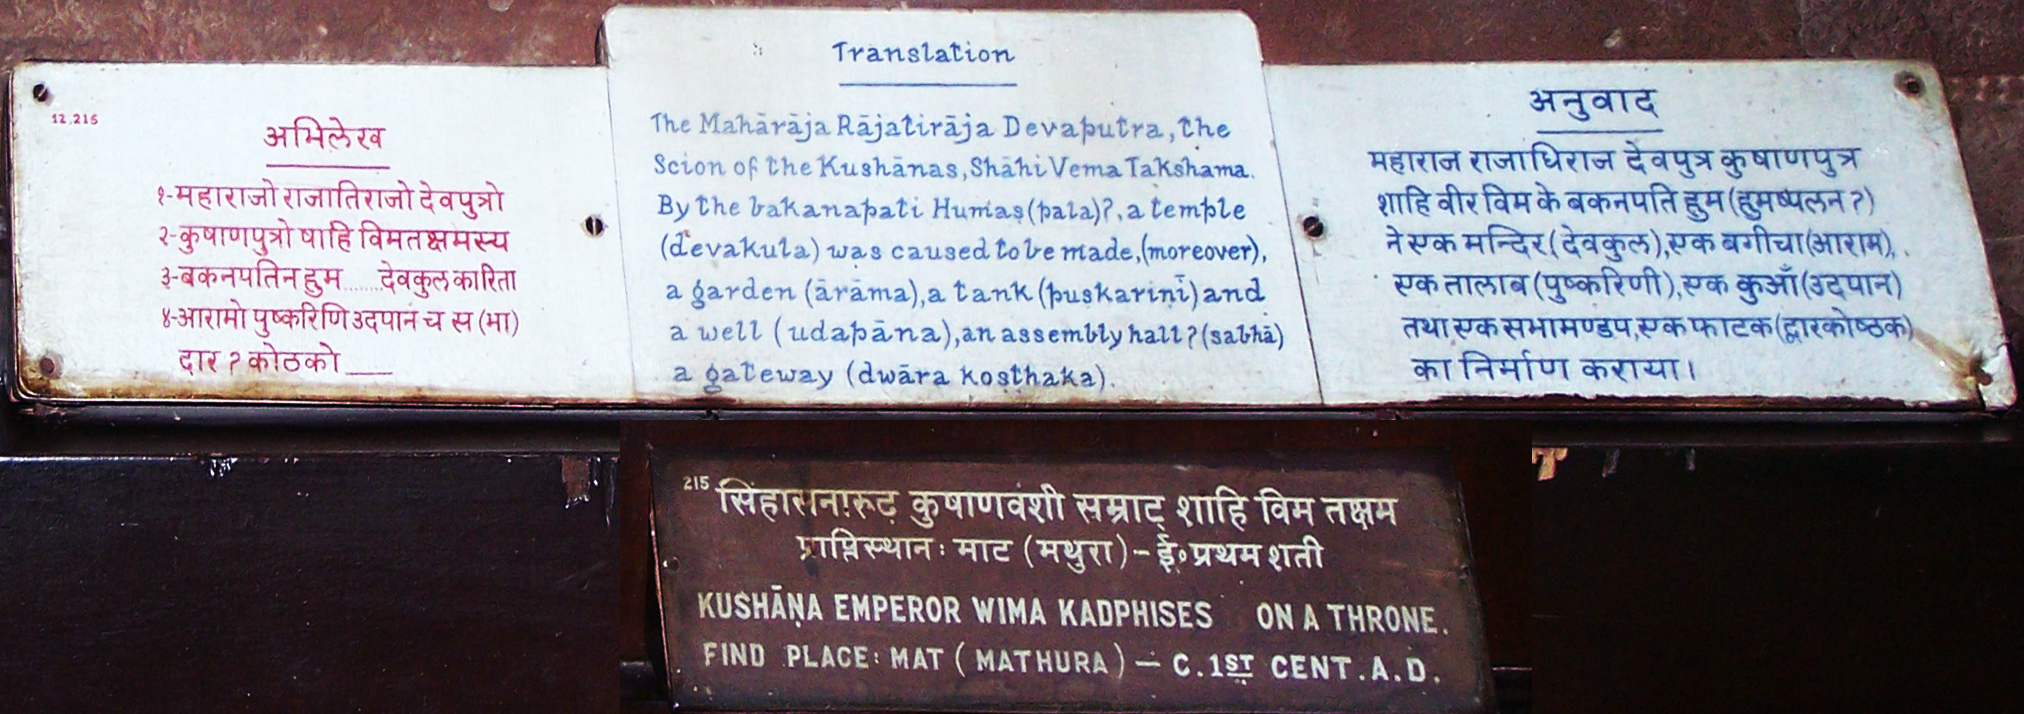 12,215
अभिलेख
१-महाराजो राजातिराजो देवपुत्रो
२-कुषाणपुत्रो षाहि विमतक्षमस्य
३-बकनपतिन हुम........देवकुल कारिता
४-आरामो पुष्करिणि उदपानं च स (भा)
दार ? कोठको ___
Translation
The Mahārāja Rājatirāja Devaputra, the
Scion of the Kushānas, Shāhi Vema Takshama.
By the bakanapati Humaṣ(pala)?, a temple
(devakula) was caused to be made, (moreover),
a garden (ārāma), a tank (puskariṇī) and
a well (udapāna), an assembly hall? (sabhā)
a gateway (dwāra koṣthaka).
अनुवाद
महाराज राजाधिराज देवपुत्र कुषाणपुत्र
शाहि वीर विम के बकनपति हुम (हुमष्पलन ?)
ने एक मन्दिर (देवकुल), एक बगीचा (आराम),
एक तालाब (पुष्करिणी), एक कुआँ (उदपान)
तथा एक सभामण्डप, एक फाटक (द्वारकोष्ठक)
का निर्माण कराया।
215
सिंहासनारूढ़ कुषाणवंशी सम्राट् शाहि विम तक्षम
प्राप्तिस्थान : माट (मथुरा) - ई॰ प्रथम शती
KUSHĀṆA EMPEROR WIMA KADPHISES ON A THRONE.
FIND PLACE: MAT (MATHURA) – C. 1ST CENT. A.D.